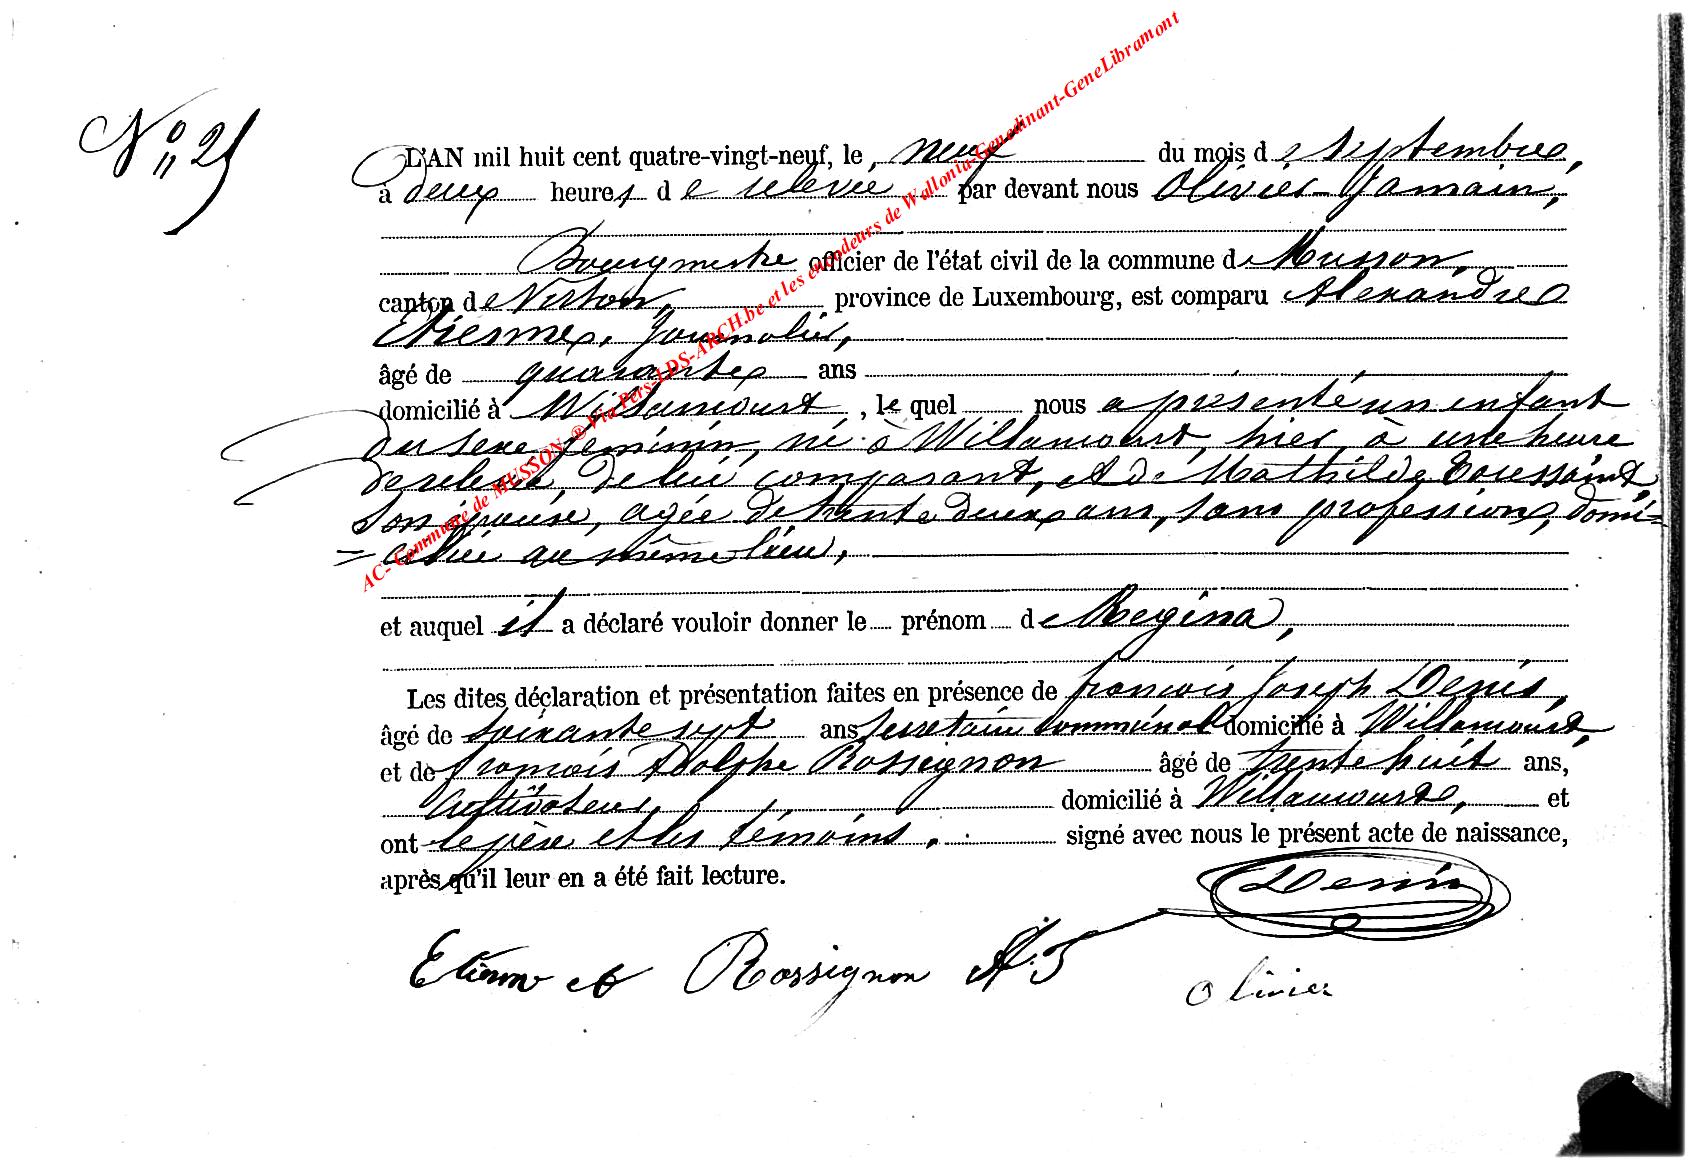 N° 25
L'AN mil huit cent quatre-vingt-neuf, le neuf du mois de septembre,
à deux heures de relevée par devant nous Olivier Jamain,
Bourgmestre officier de l'état civil de la commune de Musson,
canton de Virton, province de Luxembourg, est comparu Alexandre
Etienne, Journalier,
âgé de quarante ans
domicilié à Willancourt, lequel nous a présenté un enfant
du sexe féminin, né à Willancourt, hier, à une heure
de relevée, de lui comparant, et de Mathilde Toussaint,
son épouse, agée de trente deux ans, sans profession, domi-
-ciliée au même lieu,
et auquel il a déclaré vouloir donner le prénom de Régina,
Les dites déclaration et présentation faites en présence de françois Joseph Denis,
âgé de soixante sept ans secretaire communal domicilié à Willancourt,
et de françois Adolphe Rossignon âgé de trente huit ans,
Cultivateur, domicilié à Willancourt, et
ont le père et les témoins. signé avec nous le présent acte de naissance,
après qu'il leur en a été fait lecture.
Denis
Etienne Rossignon
Olivier
AC- Commune de MUSSON ® Via Pers-LDS-ARCH.be et les encodeurs de Wallonia-Genedinant-GeneLibramont